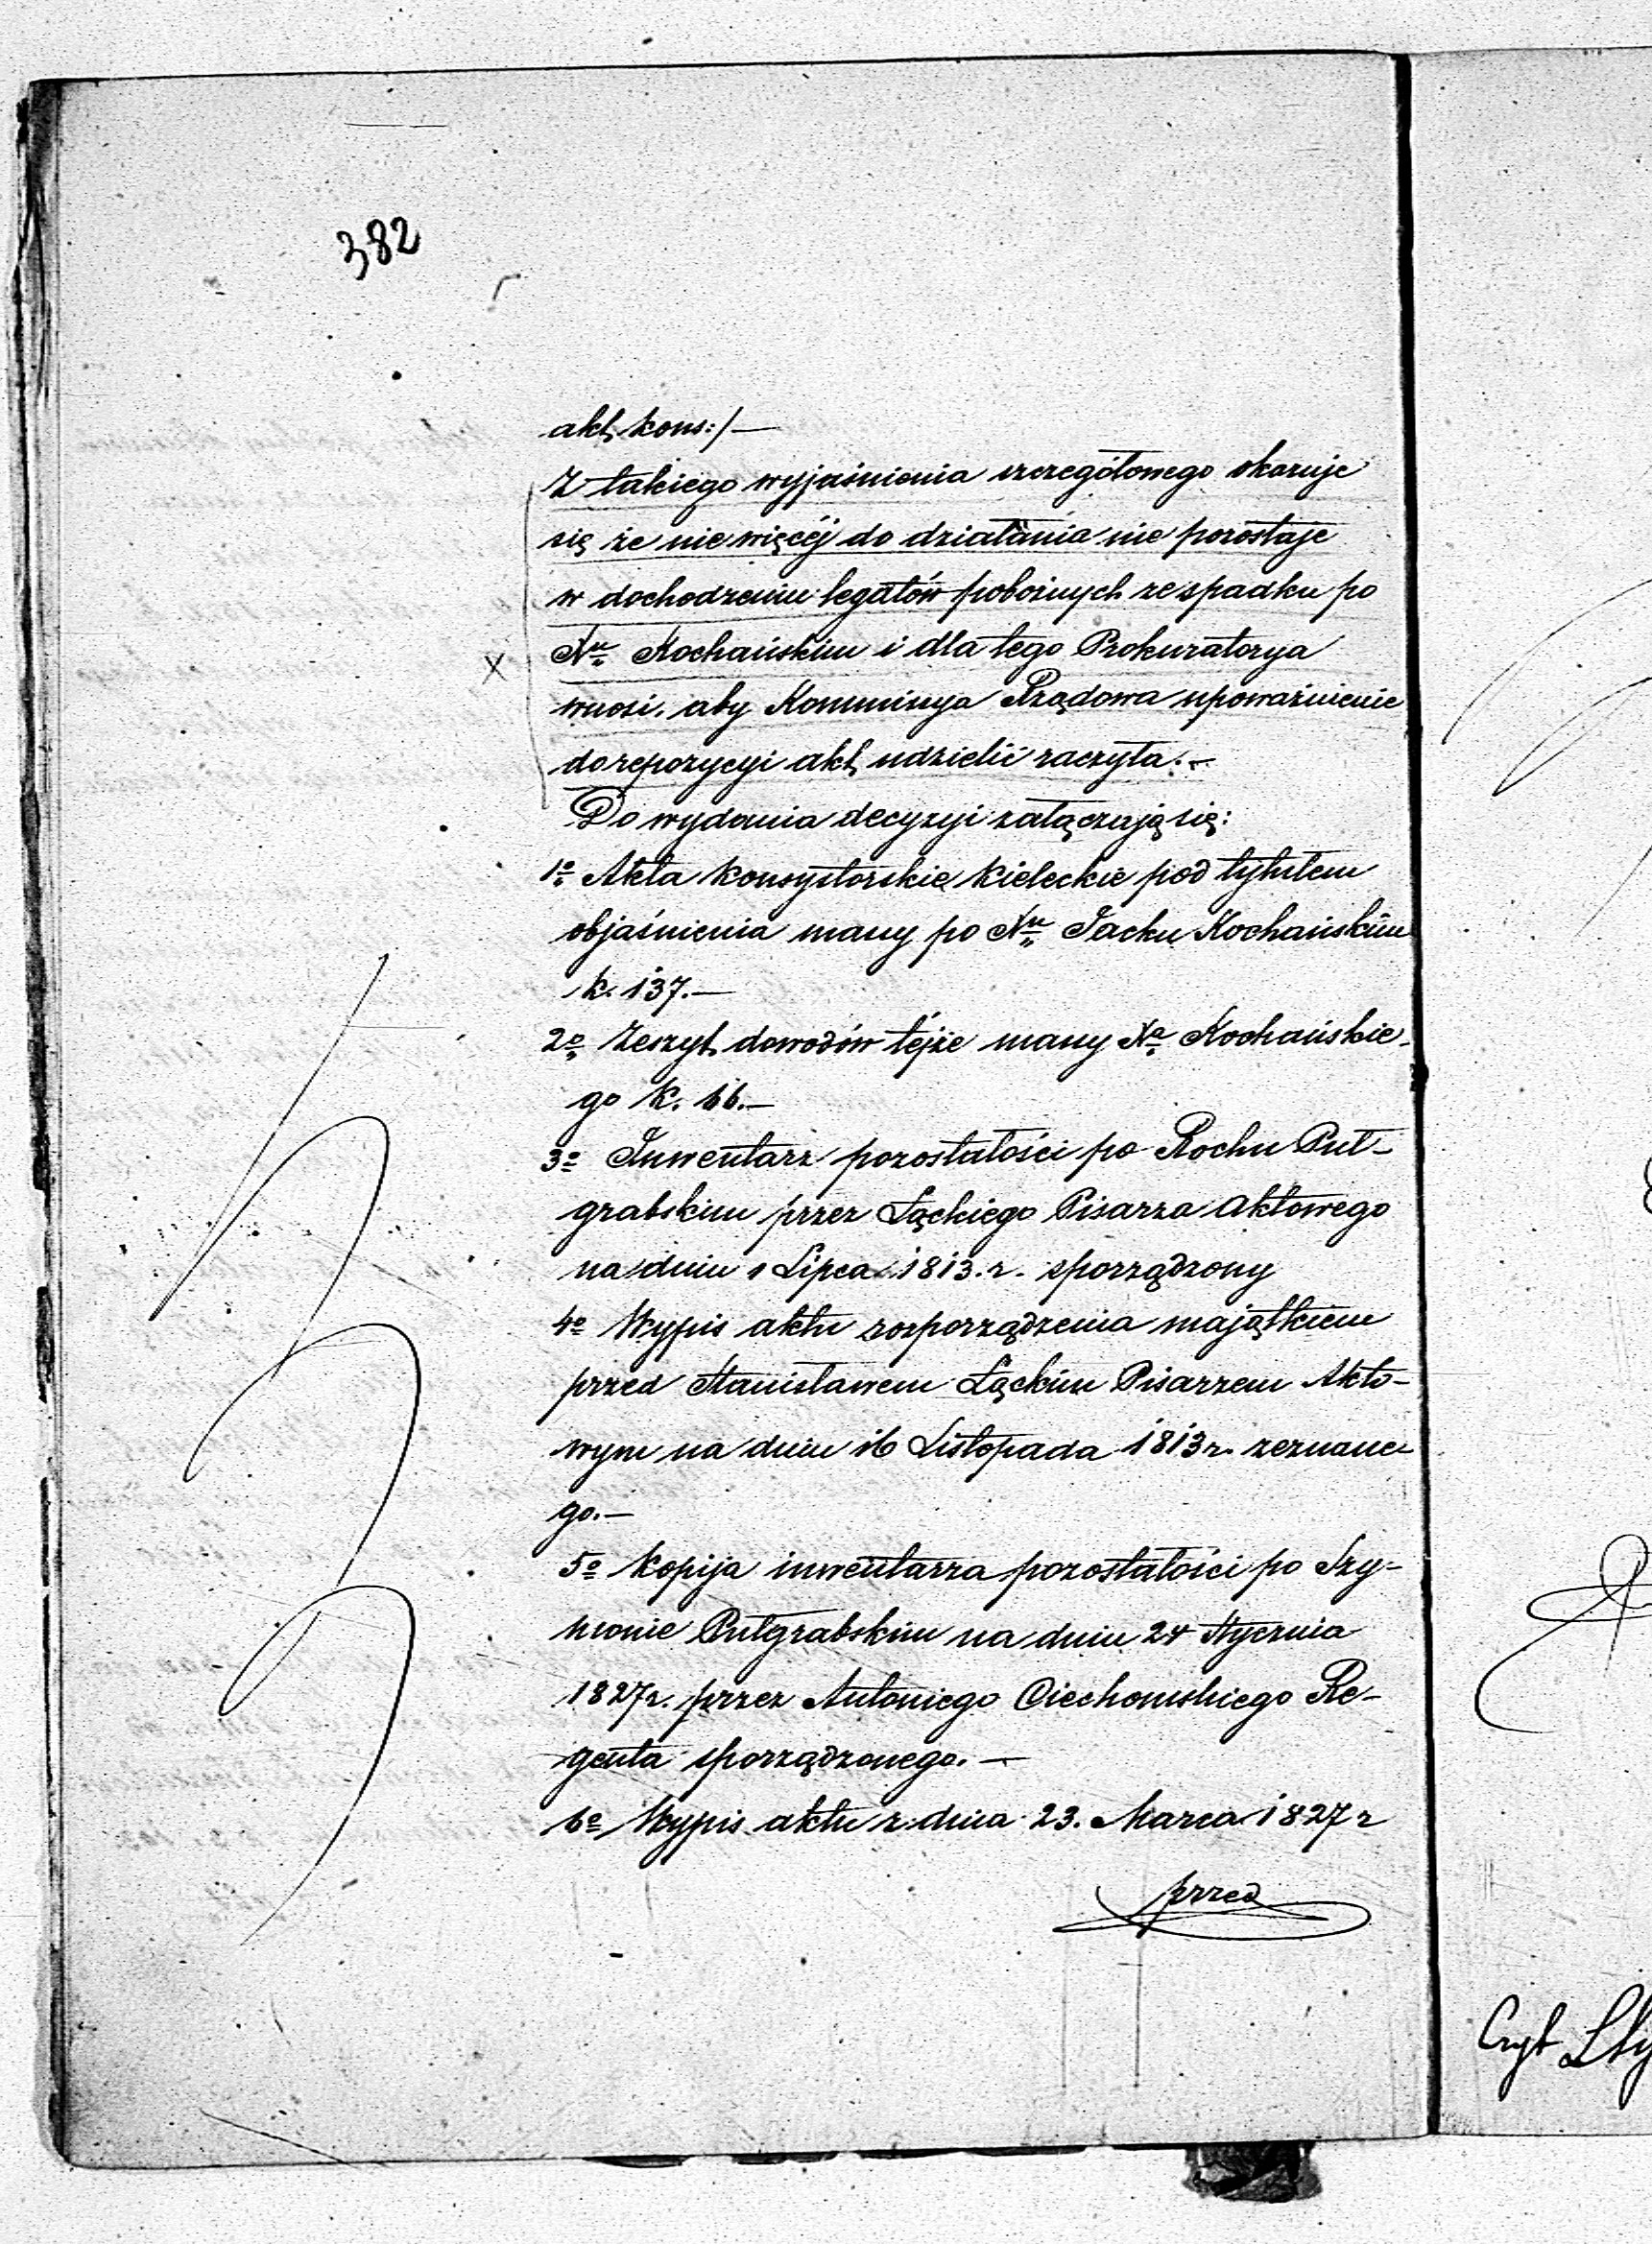 382
akt kons:/—
Z takiego wyjaśnienia szczegółowego okazuje
się że nic więcéj do działania nie pozostaje
w dochodzeniu legatów pobożnych ze spadku po
Xu Kochańskim i dla tego Prokuratorya
wnosi, aby Kommissya Rządowa upoważnienie
do repozycyi akt udzielić raczyła.—
Do wydania decyzyi załączają się:
1o Akta konsystorskie kieleckie pod tytułem
objaśnienia massy po Xu Jacku Kochańskim
k. 137.—
2o Zeszyt dowodów téjże massy Xa Kochańskie-
go k. 66.—
3o Inwentarz pozostałości po Rochu Puł-
grabskim przez Łąckiego Pisarza aktowego
na dniu 1 Lipca 1813. r. sporządzony
4o Wypis aktu rozporządzenia majątkiem
przed Stanisławem Łąckim Pisarzem Akto-
wym na dniu 16 Listopada 1813 r. zeznane-
go.—
5o kopija inwentarza pozostałości po Szy-
monie Pułgrabskim na dniu 24 Stycznia
1827 r. przez Antoniego Ciechomskiego Re-
genta sporządzonego.—
6o Wypis aktu z dnia 23. Marca 1827 r
przed